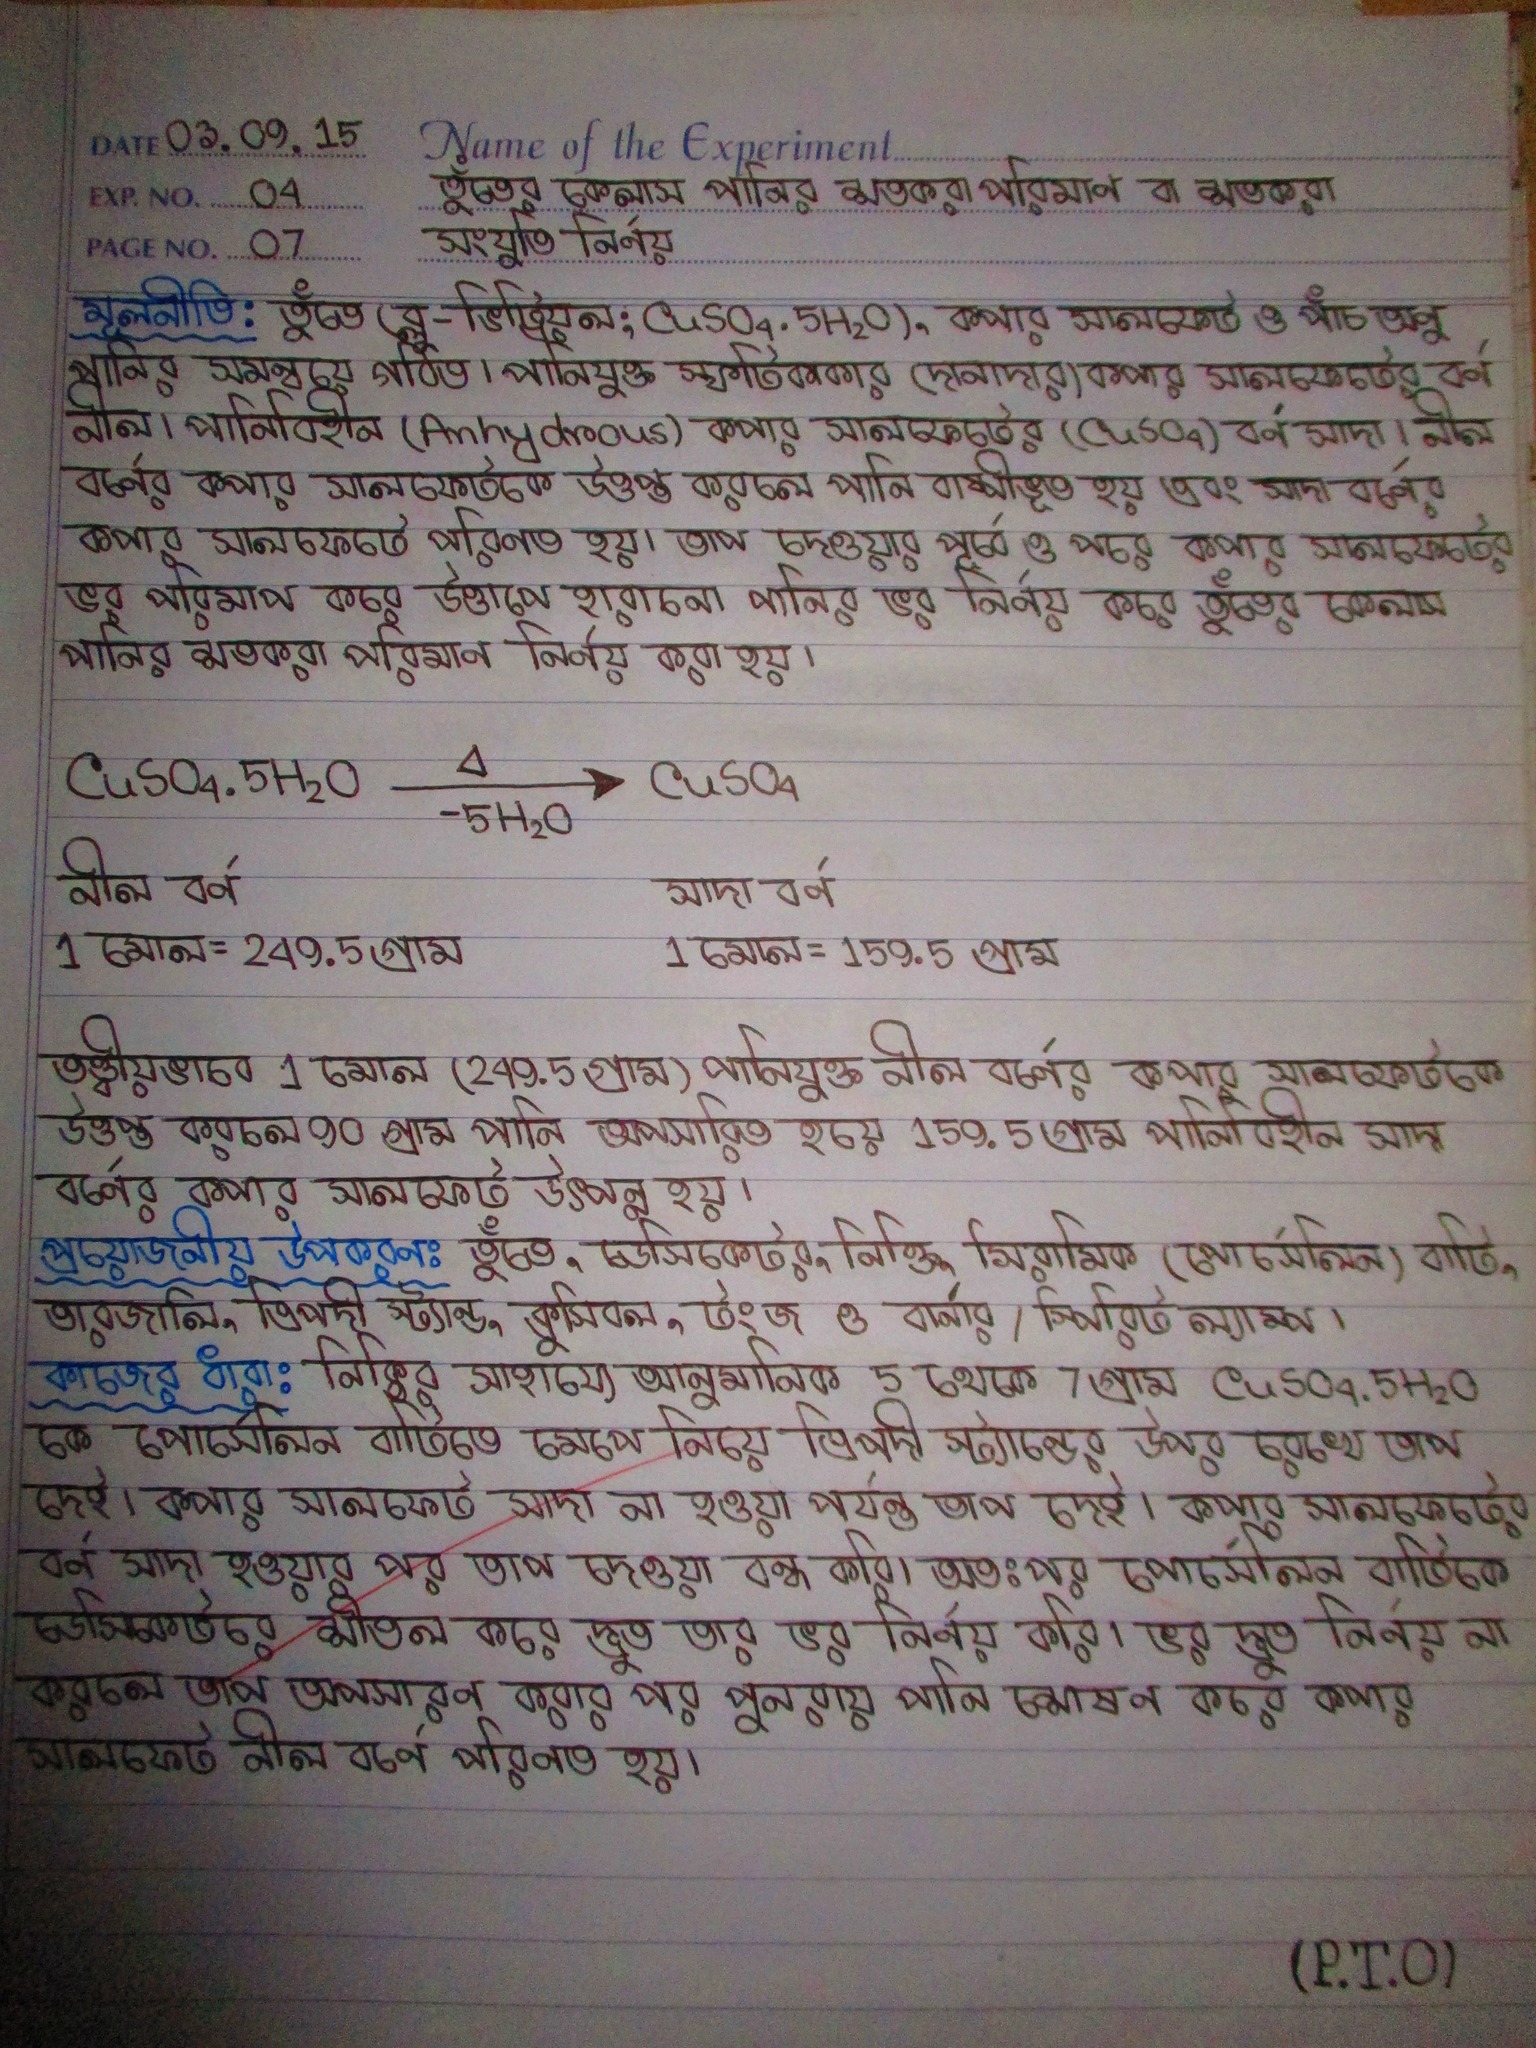 DATE 03.09.15 Name of the Experiment
EXP. NO. 04 তুঁতের কেলাস পানির শতকরা পরিমান বা শতকরা
PAGE NO. 07 সংযুতি নির্ণয়
মূলনীতি: তুঁতে (ব্লু-ভিট্রিয়ল; CuSO₄.5H₂O), কপার সালফেট ও পাঁচ অনু
পানির সমন্বয়ে গঠিত। পানিযুক্ত স্ফটিকাকার (দানাদার) কপার সালফেটের বর্ন
নীল। পানিবিহীন (Anhydrous) কপার সালফেটের (CuSO₄) বর্ন সাদা। নীল
বর্নের কপার সালফেটকে উত্তপ্ত করলে পানি বাষ্পীভূত হয় এবং সাদা বর্নের
কপার সালফেটে পরিনত হয়। তাপ দেওয়ার পূর্বে ও পরে কপার সালফেটের
ভর পরিমাপ করে উত্তাপে হারানো পানির ভর নির্নয় করে তুঁতের কেলাস
পানির শতকরা পরিমান নির্নয় করা হয়।
CuSO₄.5H₂O Δ → CuSO₄
-5H₂O
নীল বর্ন সাদা বর্ন
1 মোল = 249.5 গ্রাম 1 মোল = 159.5 গ্রাম
তত্ত্বীয়ভাবে 1 মোল (249.5 গ্রাম) পানিযুক্ত নীল বর্নের কপার সালফেটকে
উত্তপ্ত করলে 90 গ্রাম পানি অপসারিত হয়ে 159.5 গ্রাম পানিবিহীন সাদা
বর্নের কপার সালফেট উৎপন্ন হয়।
প্রয়োজনীয় উপকরন: তুঁতে, ডেসিকেটর, নিক্তি, সিরামিক (পোর্সেলিন) বাটি,
তারজালি, ত্রিপদী স্ট্যান্ড, ক্রুসিবল, টংজ ও বার্নার / স্পিরিট ল্যাম্প।
কাজের ধারা: নিক্তির সাহায্যে আনুমানিক 5 থেকে 7 গ্রাম CuSO₄.5H₂O
কে পোর্সেলিন বাটিতে মেপে নিয়ে ত্রিপদী স্ট্যান্ডের উপর রেখে তাপ
দেই। কপার সালফেট সাদা না হওয়া পর্যন্ত তাপ দেই। কপার সালফেটের
বর্ন সাদা হওয়ার পর তাপ দেওয়া বন্ধ করি। অতঃপর পোর্সেলিন বাটিকে
ডেসিকেটরে শীতল করে দ্রুত তার ভর নির্নয় করি। ভর দ্রুত নির্নয় না
করলে তাপ অপসারন করার পর পুনরায় পানি শোষন করে কপার
সালফেট নীল বর্নে পরিনত হয়।
(P.T.O)